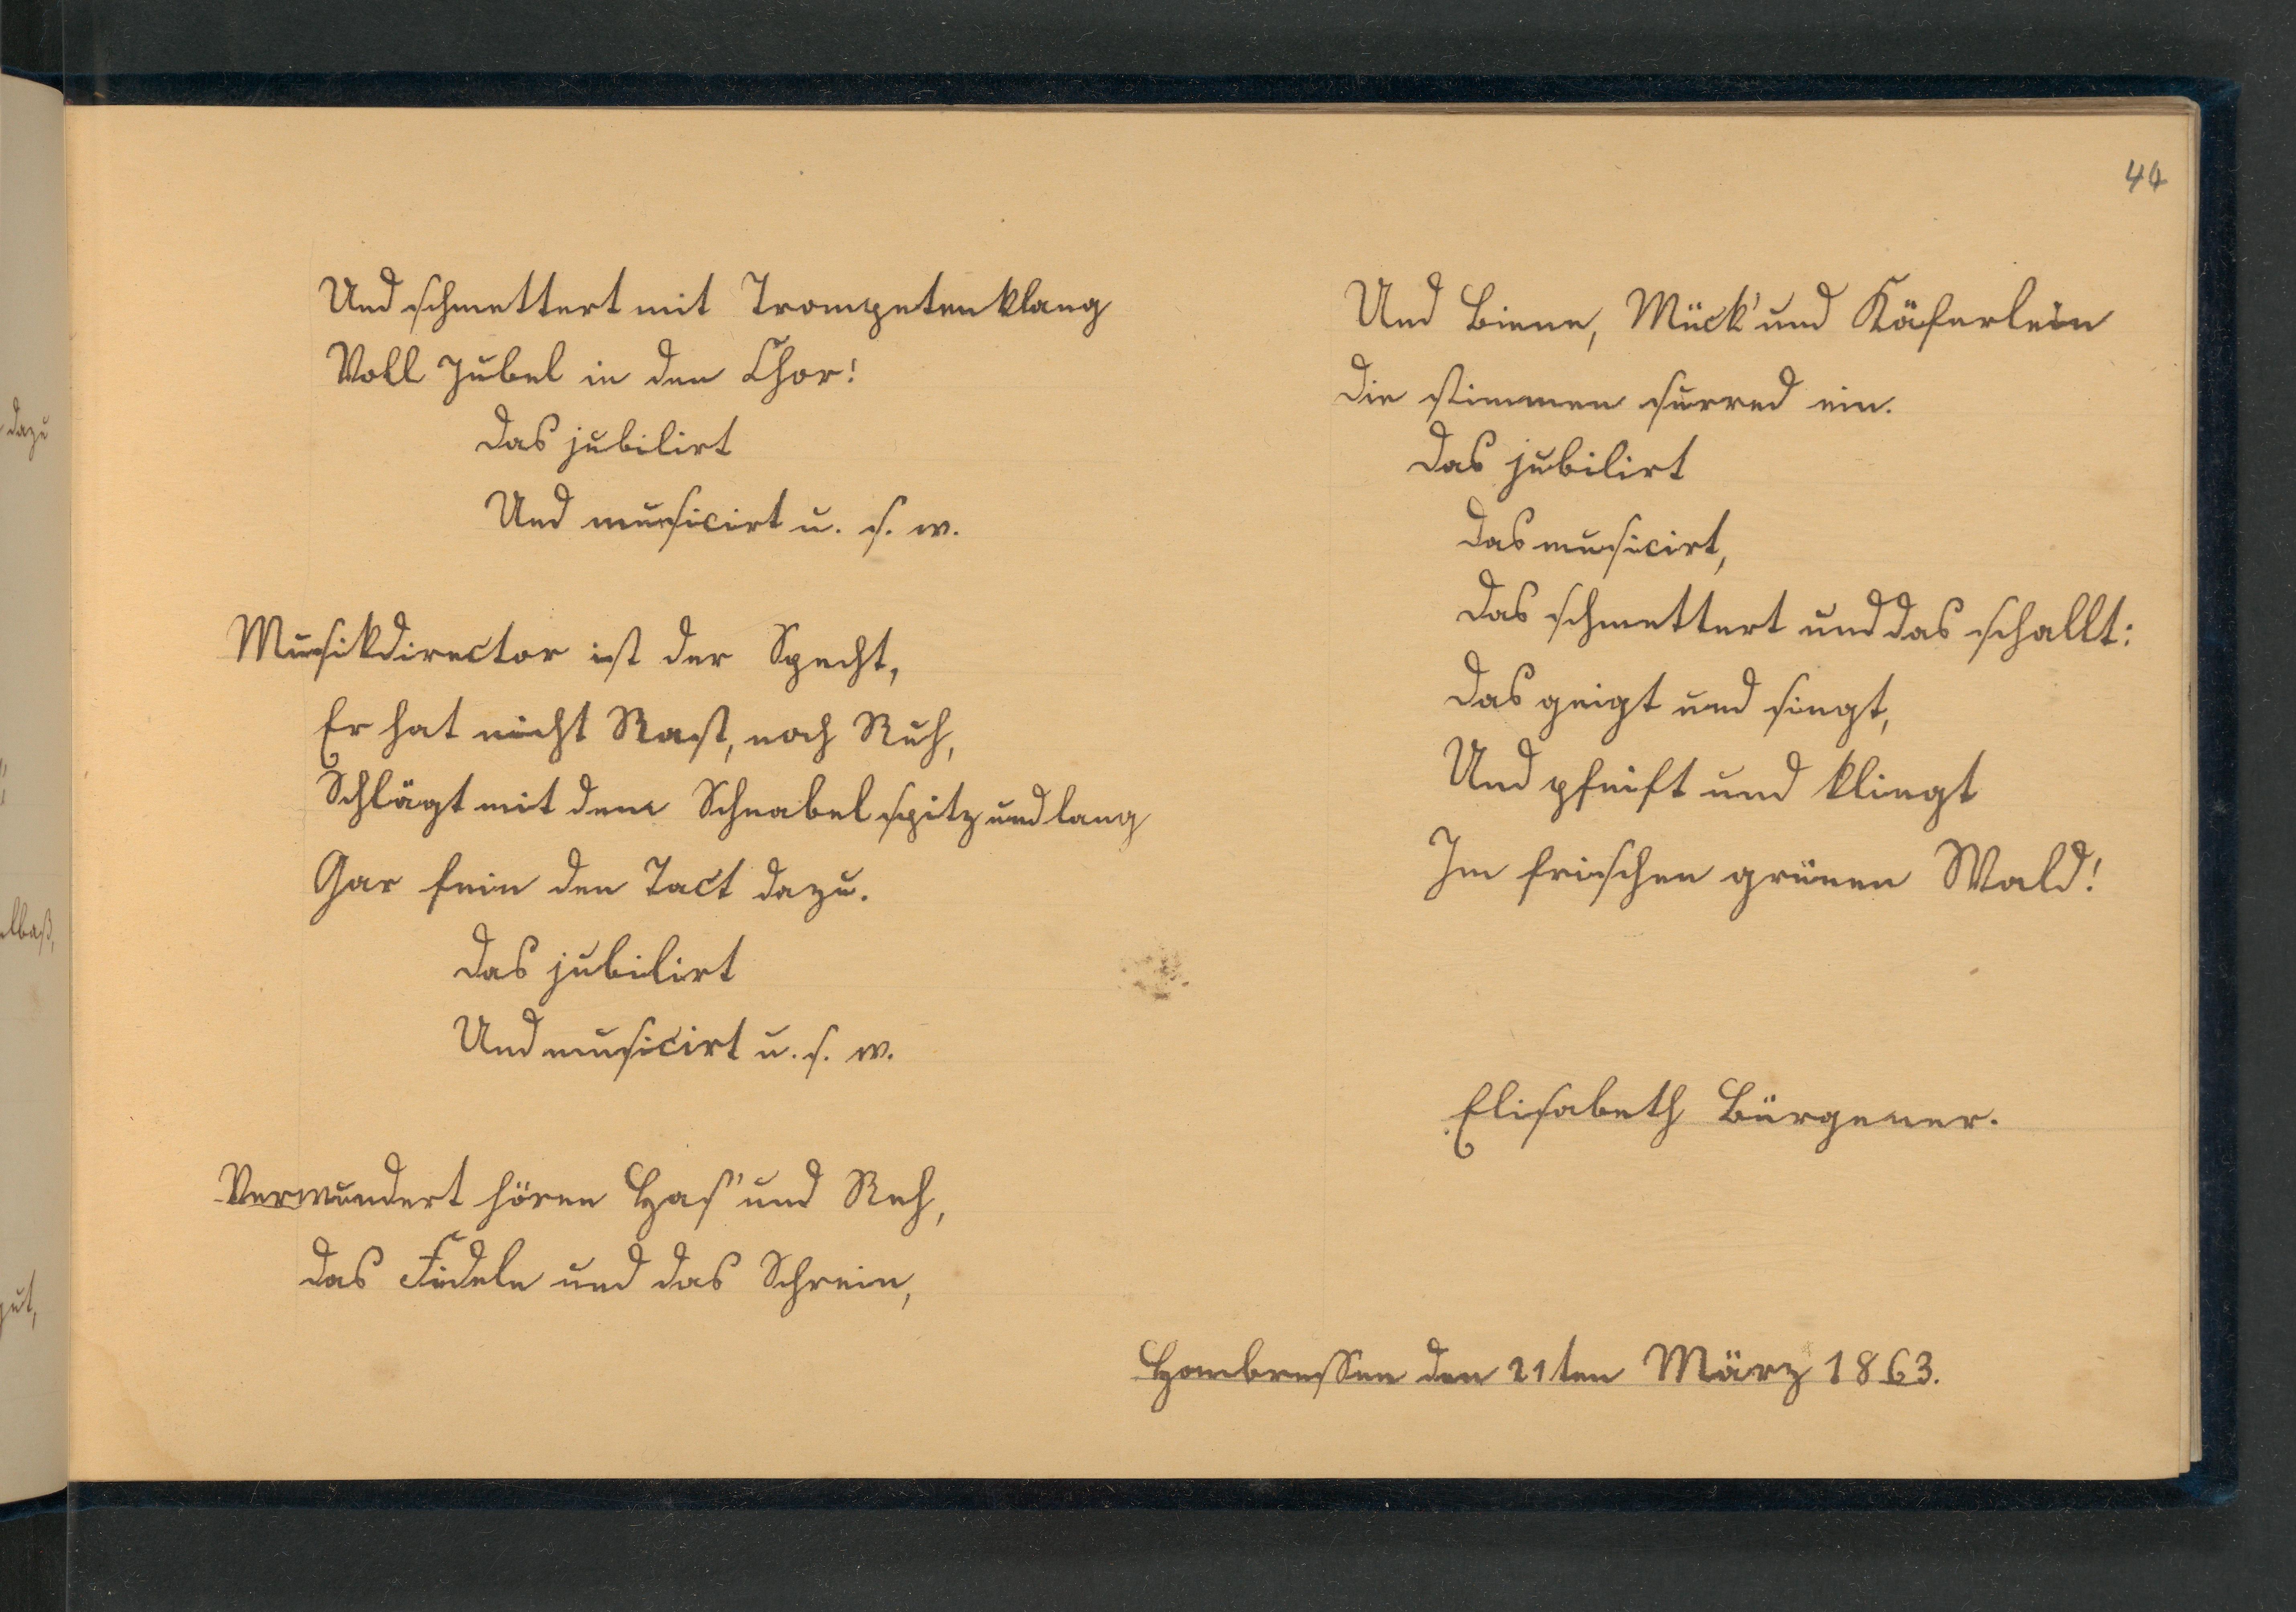 44
Und schmettert mit Trompetenklang
Voll Jubel in den Chor!
Das jubilirt
Und musicirt u. s. w.
Musikdirector ist der Specht,
Er hat nicht Rast, noch Ruh,
Schlägt mit dem Schnabel spitz und lang
Gar fein den Tact dazu.
Das jubilirt
Und musicirt u. s. w.
Verwundert hören Has' und Reh,
Das Fideln und das Schrein,
Und Biene, Mück' und Käferlein
Die stimmen surred ein.
Das jubilirt
Das musicirt,
Das schmettert und das schallt:
Das geigt und singt,
Und pfeift und klingt
Im frischen grünen Wald!
Elisabeth Bürgener.
Hombressen den 21ten März 1863.
dazu
elbaß,
gut,